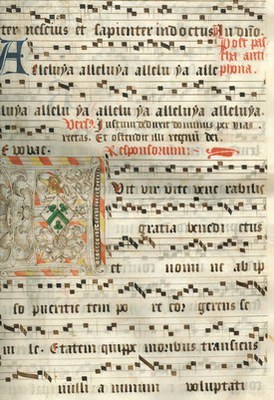 ter nescius et sapienter indoctus In dño.
Post pas
cha anti
phona.
Alleluya alleluya alleluya alle
luya alleluya alleluya alleluya alleluya.
Vers. Justum deduxit dominus per vias
rectas. Et ostendit illi regnum dei.
Evovae. Responsorium.
Fuit vir vite venerabilis
gratia benedictus
et nomine ab ip
so pueritie tempore cor gerens se
nile. Etatem quippe moribus transiens
nulli animum voluptati